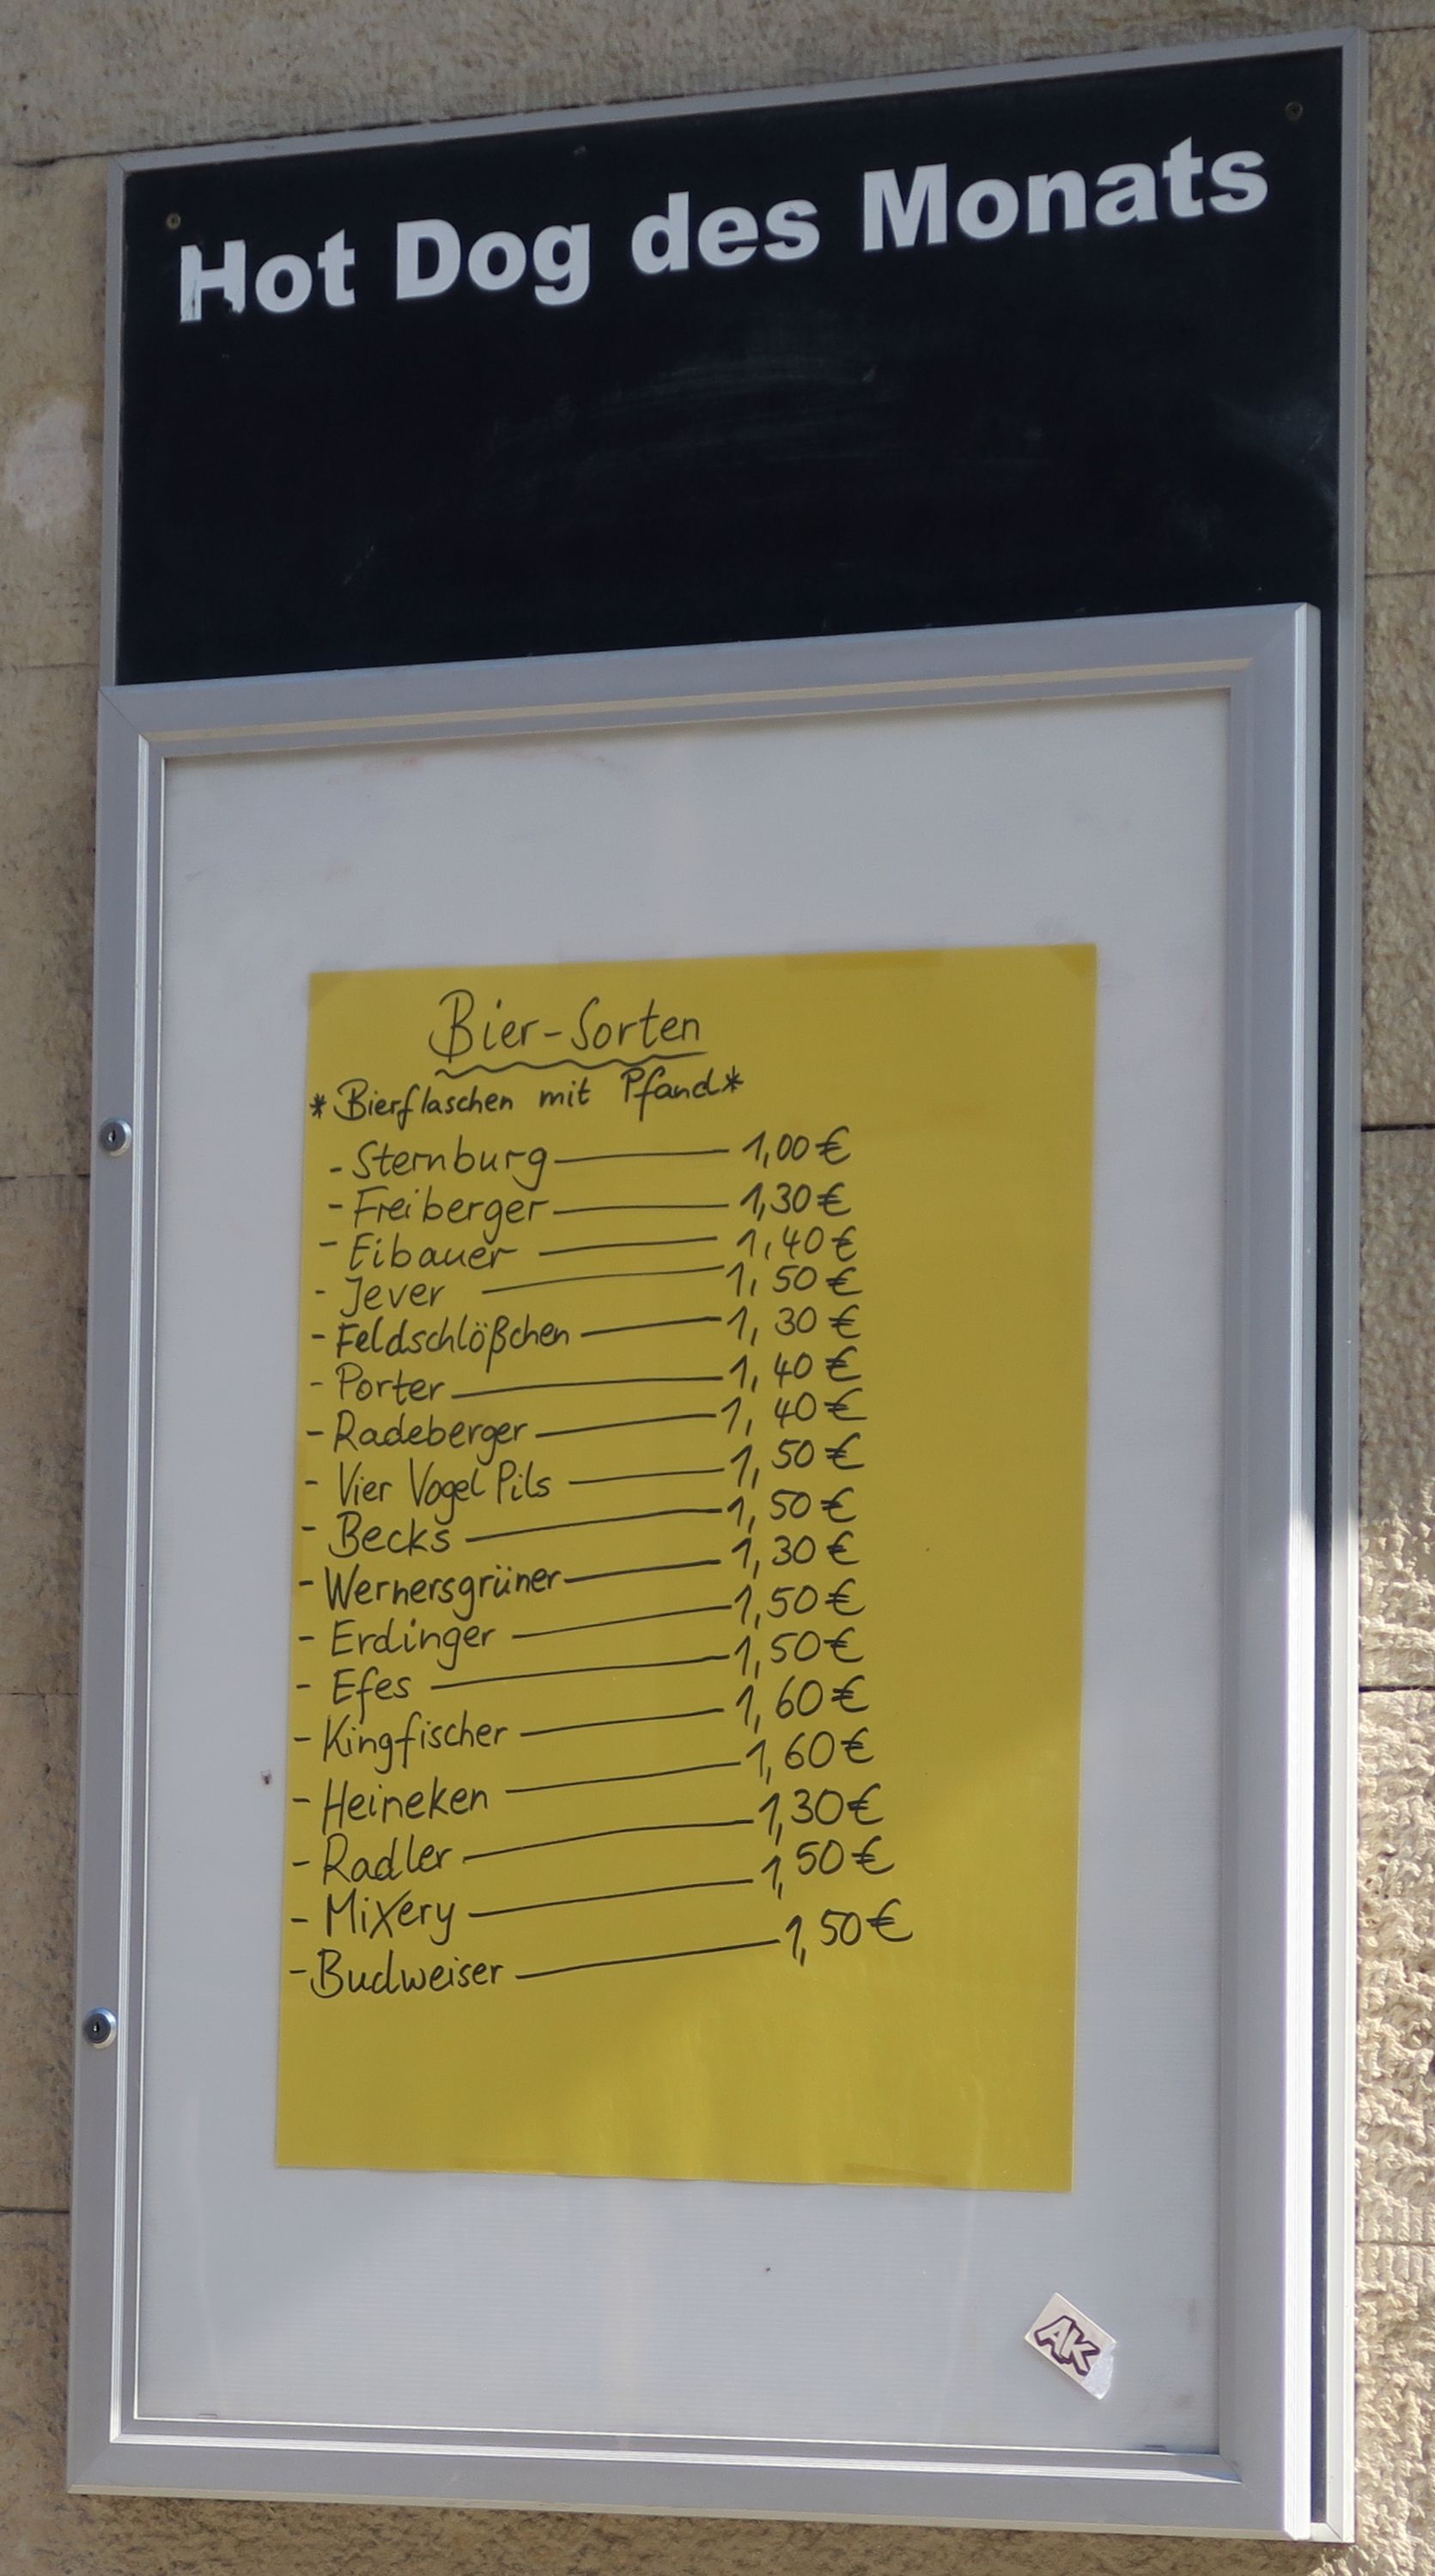 Hot Dog des Monats
Bier-Sorten
*Bierflaschen mit Pfand*
- Sternburg 1,00€
- Freiberger 1,30€
- Eibauer 1,40€
- Jever 1,50€
- Feldschlößchen 1,30€
- Porter 1,40€
- Radeberger 1,40€
- Vier Vogel Pils 1,50€
- Becks 1,50€
- Wernersgrüner 1,30€
- Erdinger 1,50€
- Efes 1,50€
- Kingfischer 1,60€
- Heineken 1,60€
- Radler 1,30€
- Mixery 1,50€
- Budweiser 1,50€
AK